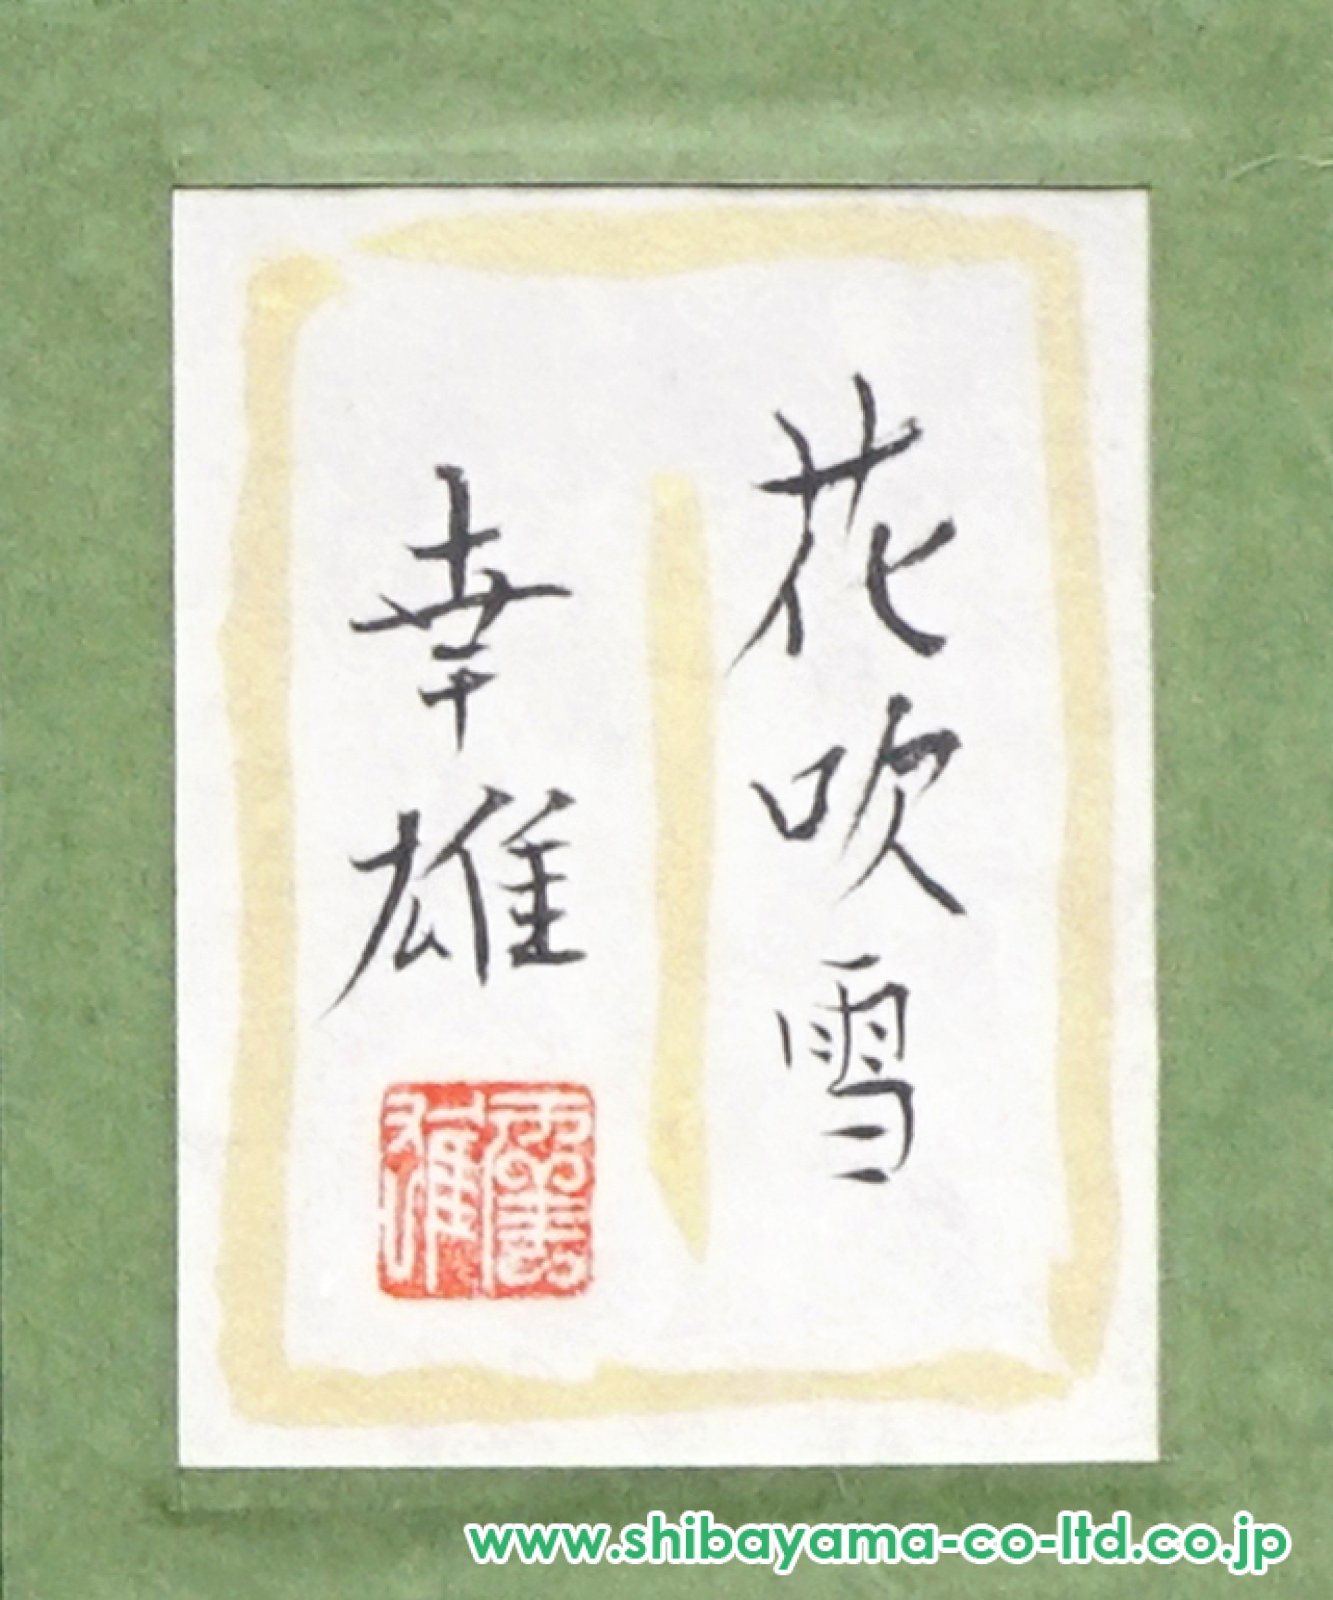 花吹雪
幸雄
www.shibayama-co-ltd.co.jp